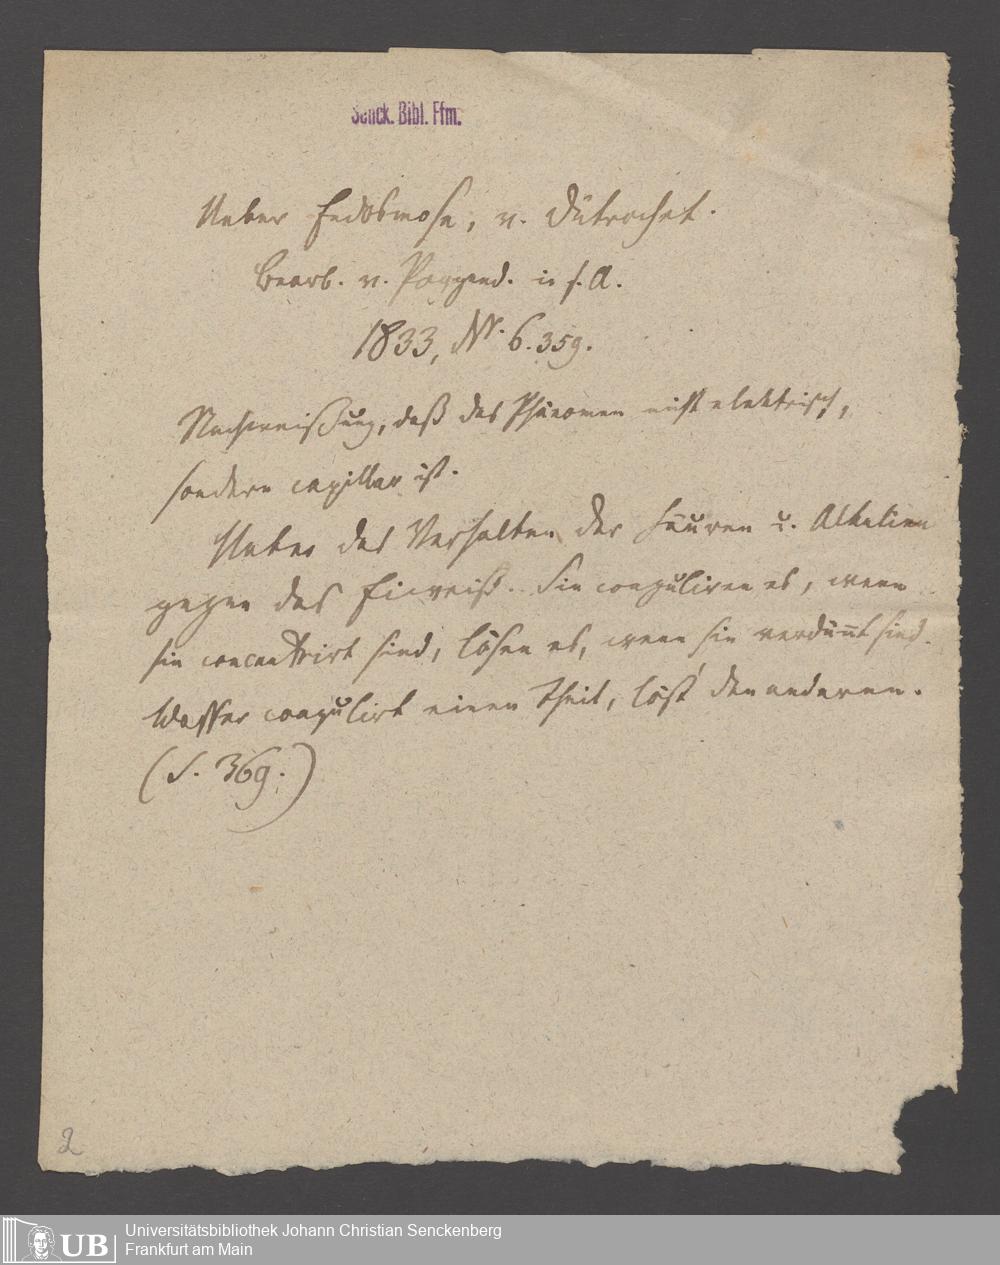 Senck. Bibl. Ffm.
Ueber Endosmose, v. Dütrochet.
Bearb. v. Poggend. in s. A.
1833, Nr. 6. 359.
Nachweisung, daß das Phänomen nicht elektrisch,
sondern capillar ist.
Ueber das Verhalten der Säuren u. Alkalien
gegen das Eiweiß. Sie coaguliren es, wenn
sie concentrirt sind, lösen es, wenn sie verdünnt sind.
Wasser coagulirt einen Theil, löst den anderen.
(S. 369.)
2
UB
Universitätsbibliothek Johann Christian Senckenberg
Frankfurt am Main